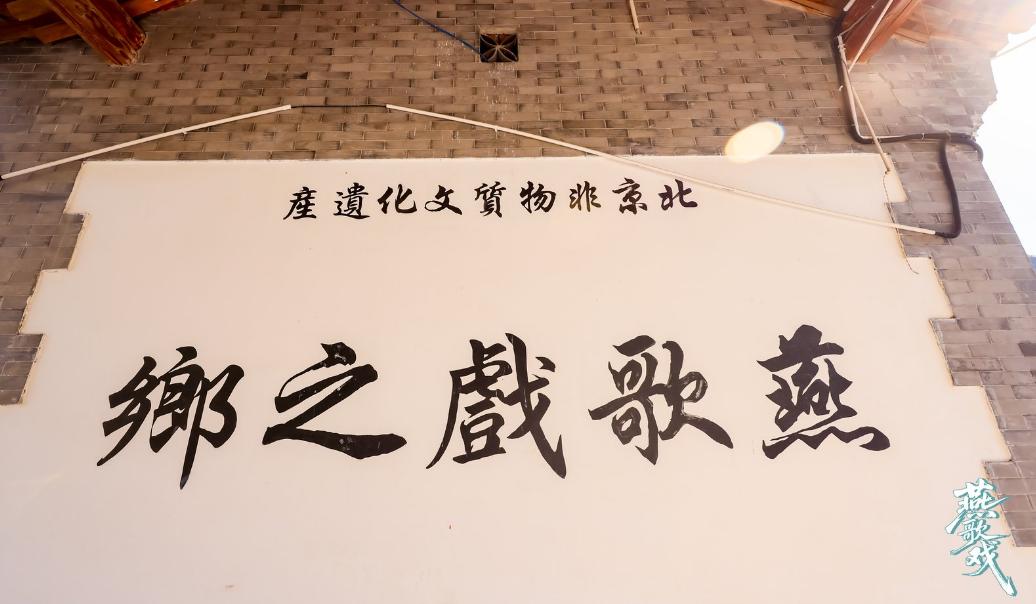 北京非物質文化遺産
燕歌戲之鄉
燕歌戏